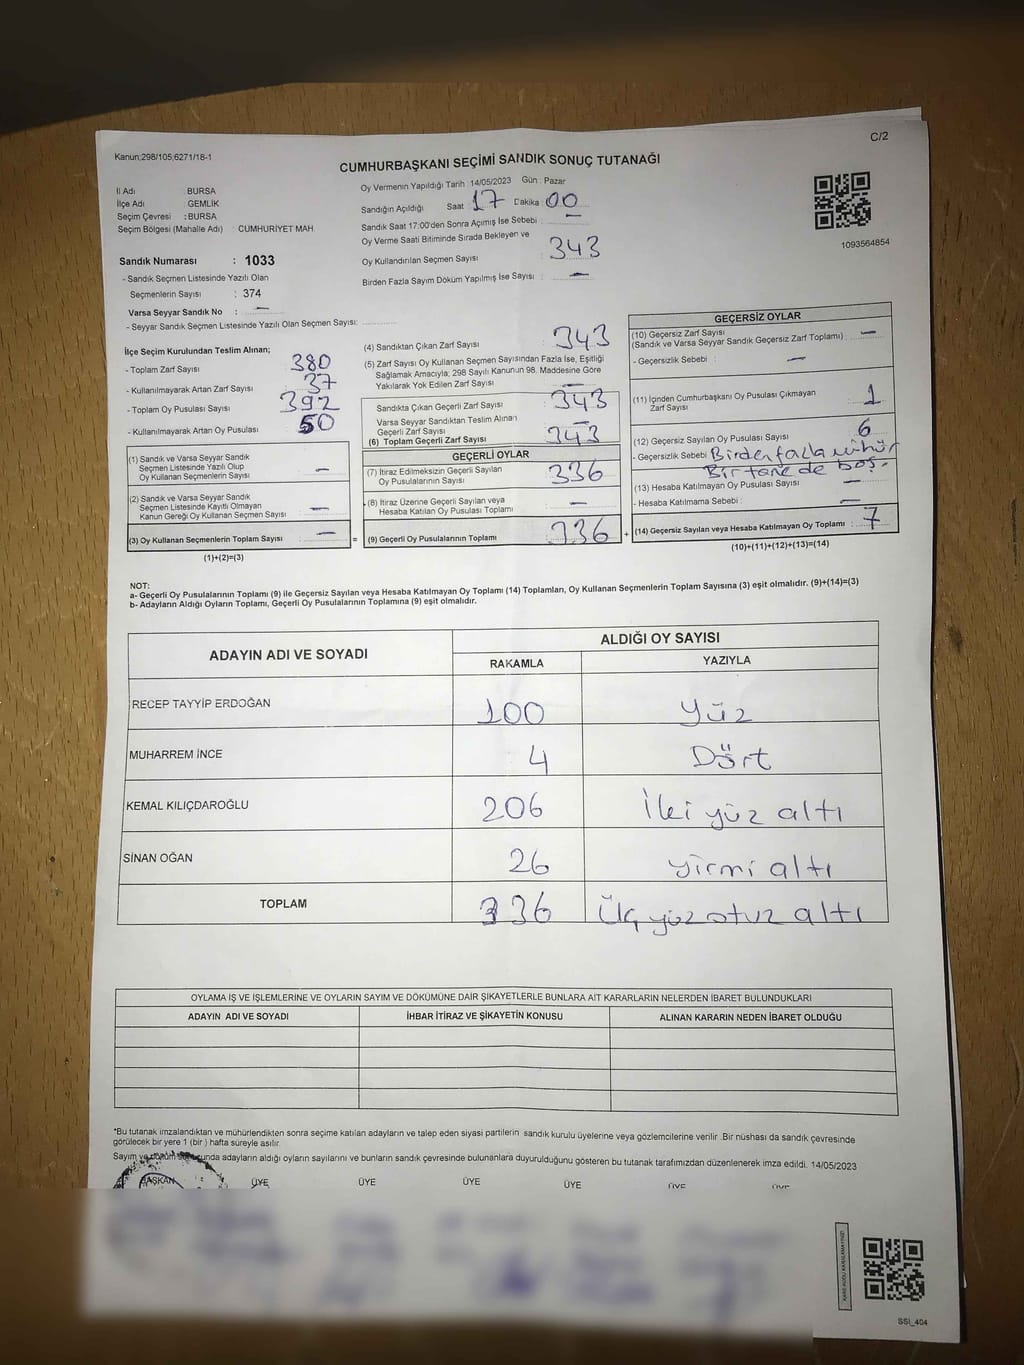 C/2
Kanun;298/105;6271/18-1
CUMHURBAŞKANI SEÇİMİ SANDIK SONUÇ TUTANAĞI
İl Adı : BURSA
İlçe Adı : GEMLİK
Seçim Çevresi : BURSA
Seçim Bölgesi (Mahalle Adı) CUMHURİYET MAH
Sandık Numarası : 1033
- Sandık Seçmen Listesinde Yazılı Olan
Seçmenlerin Sayısı : 374
Varsa Seyyar Sandık No : —
- Seyyar Sandık Seçmen Listesinde Yazılı Olan Seçmen Sayısı:
Oy Vermenin Yapıldığı Tarih : 14/05/2023 Gün : Pazar
Sandığın Açıldığı Saat 17 Dakika : 00
Sandık Saat 17:00'den Sonra Açımış İse Sebebi : —
Oy Verme Saati Bitiminde Sırada Bekleyen ve
Oy Kullandırılan Seçmen Sayısı 343
Birden Fazla Sayım Döküm Yapılmış İse Sayısı : —
1093564854
İlçe Seçim Kurulundan Teslim Alınan;
- Toplam Zarf Sayısı 380
- Kullanılmayarak Artan Zarf Sayısı 37
- Toplam Oy Pusulası Sayısı 392
- Kullanılmayarak Artan Oy Pusulası 50
(1) Sandık ve Varsa Seyyar Sandık
Seçmen Listesinde Yazılı Olup
Oy Kullanan Seçmenlerin Sayısı —
(2) Sandık ve Varsa Seyyar Sandık
Seçmen Listesinde Kayıtlı Olmayan
Kanun Gereği Oy Kullanan Seçmen Sayısı —
(3) Oy Kullanan Seçmenlerin Toplam Sayısı —
(1)+(2)=(3)
=
(4) Sandıktan Çıkan Zarf Sayısı 343
(5) Zarf Sayısı Oy Kullanan Seçmen Sayısından Fazla İse, Eşitliği
Sağlamak Amacıyla; 298 Sayılı Kanunun 98. Maddesine Göre
Yakılarak Yok Edilen Zarf Sayısı —
Sandıkta Çıkan Geçerli Zarf Sayısı : 343
Varsa Seyyar Sandıktan Teslim Alınan
Geçerli Zarf Sayısı —
(6) Toplam Geçerli Zarf Sayısı 343
GEÇERLİ OYLAR
(7) İtiraz Edilmeksizin Geçerli Sayılan
Oy Pusulalarının Sayısı 336
(8) İtiraz Üzerine Geçerli Sayılan veya
Hesaba Katılan Oy Pusulası Toplamı —
(9) Geçerli Oy Pusulalarının Toplamı 336
+
GEÇERSİZ OYLAR
(10) Geçersiz Zarf Sayısı
(Sandık ve Varsa Seyyar Sandık Geçersiz Zarf Toplamı) : —
- Geçersizlik Sebebi : —
(11) İçinden Cumhurbaşkanı Oy Pusulası Çıkmayan
Zarf Sayısı 1
(12) Geçersiz Sayılan Oy Pusulası Sayısı 6
- Geçersizlik Sebebi Birden fazla mühür
Bir tane de boş.
(13) Hesaba Katılmayan Oy Pusulası Sayısı —
- Hesaba Katılmama Sebebi : —
(14) Geçersiz Sayılan veya Hesaba Katılmayan Oy Toplamı 7
(10)+(11)+(12)+(13)=(14)
NOT:
a- Geçerli Oy Pusulalarının Toplamı (9) ile Geçersiz Sayılan veya Hesaba Katılmayan Oy Toplamı (14) Toplamları, Oy Kullanan Seçmenlerin Toplam Sayısına (3) eşit olmalıdır. (9)+(14)=(3)
b- Adayların Aldığı Oyların Toplamı, Geçerli Oy Pusulalarının Toplamına (9) eşit olmalıdır.
ADAYIN ADI VE SOYADI ALDIĞI OY SAYISI
RAKAMLA YAZIYLA
RECEP TAYYİP ERDOĞAN 100 Yüz
MUHARREM İNCE 4 Dört
KEMAL KILIÇDAROĞLU 206 İki yüz altı
SİNAN OĞAN 26 yirmi altı
TOPLAM 336 Üç yüz otuz altı
OYLAMA İŞ VE İŞLEMLERİNE VE OYLARIN SAYIM VE DÖKÜMÜNE DAİR ŞİKAYETLERLE BUNLARA AİT KARARLARIN NELERDEN İBARET BULUNDUKLARI
ADAYIN ADI VE SOYADI İHBAR İTİRAZ VE ŞİKAYETİN KONUSU ALINAN KARARIN NEDEN İBARET OLDUĞU
*Bu tutanak imzalandıktan ve mühürlendikten sonra seçime katılan adayların ve talep eden siyasi partilerin sandık kurulu üyelerine veya gözlemcilerine verilir .Bir nüshası da sandık çevresinde
görülecek bir yere 1 (bir ) hafta süreyle asılır.
Sayım ve döküm sonucunda adayların aldığı oyların sayılarını ve bunların sandık çevresinde bulunanlara duyurulduğunu gösteren bu tutanak tarafımızdan düzenlenerek imza edildi. 14/05/2023
BAŞKAN ÜYE ÜYE ÜYE ÜYE ÜYE ÜYE
SSİ_404